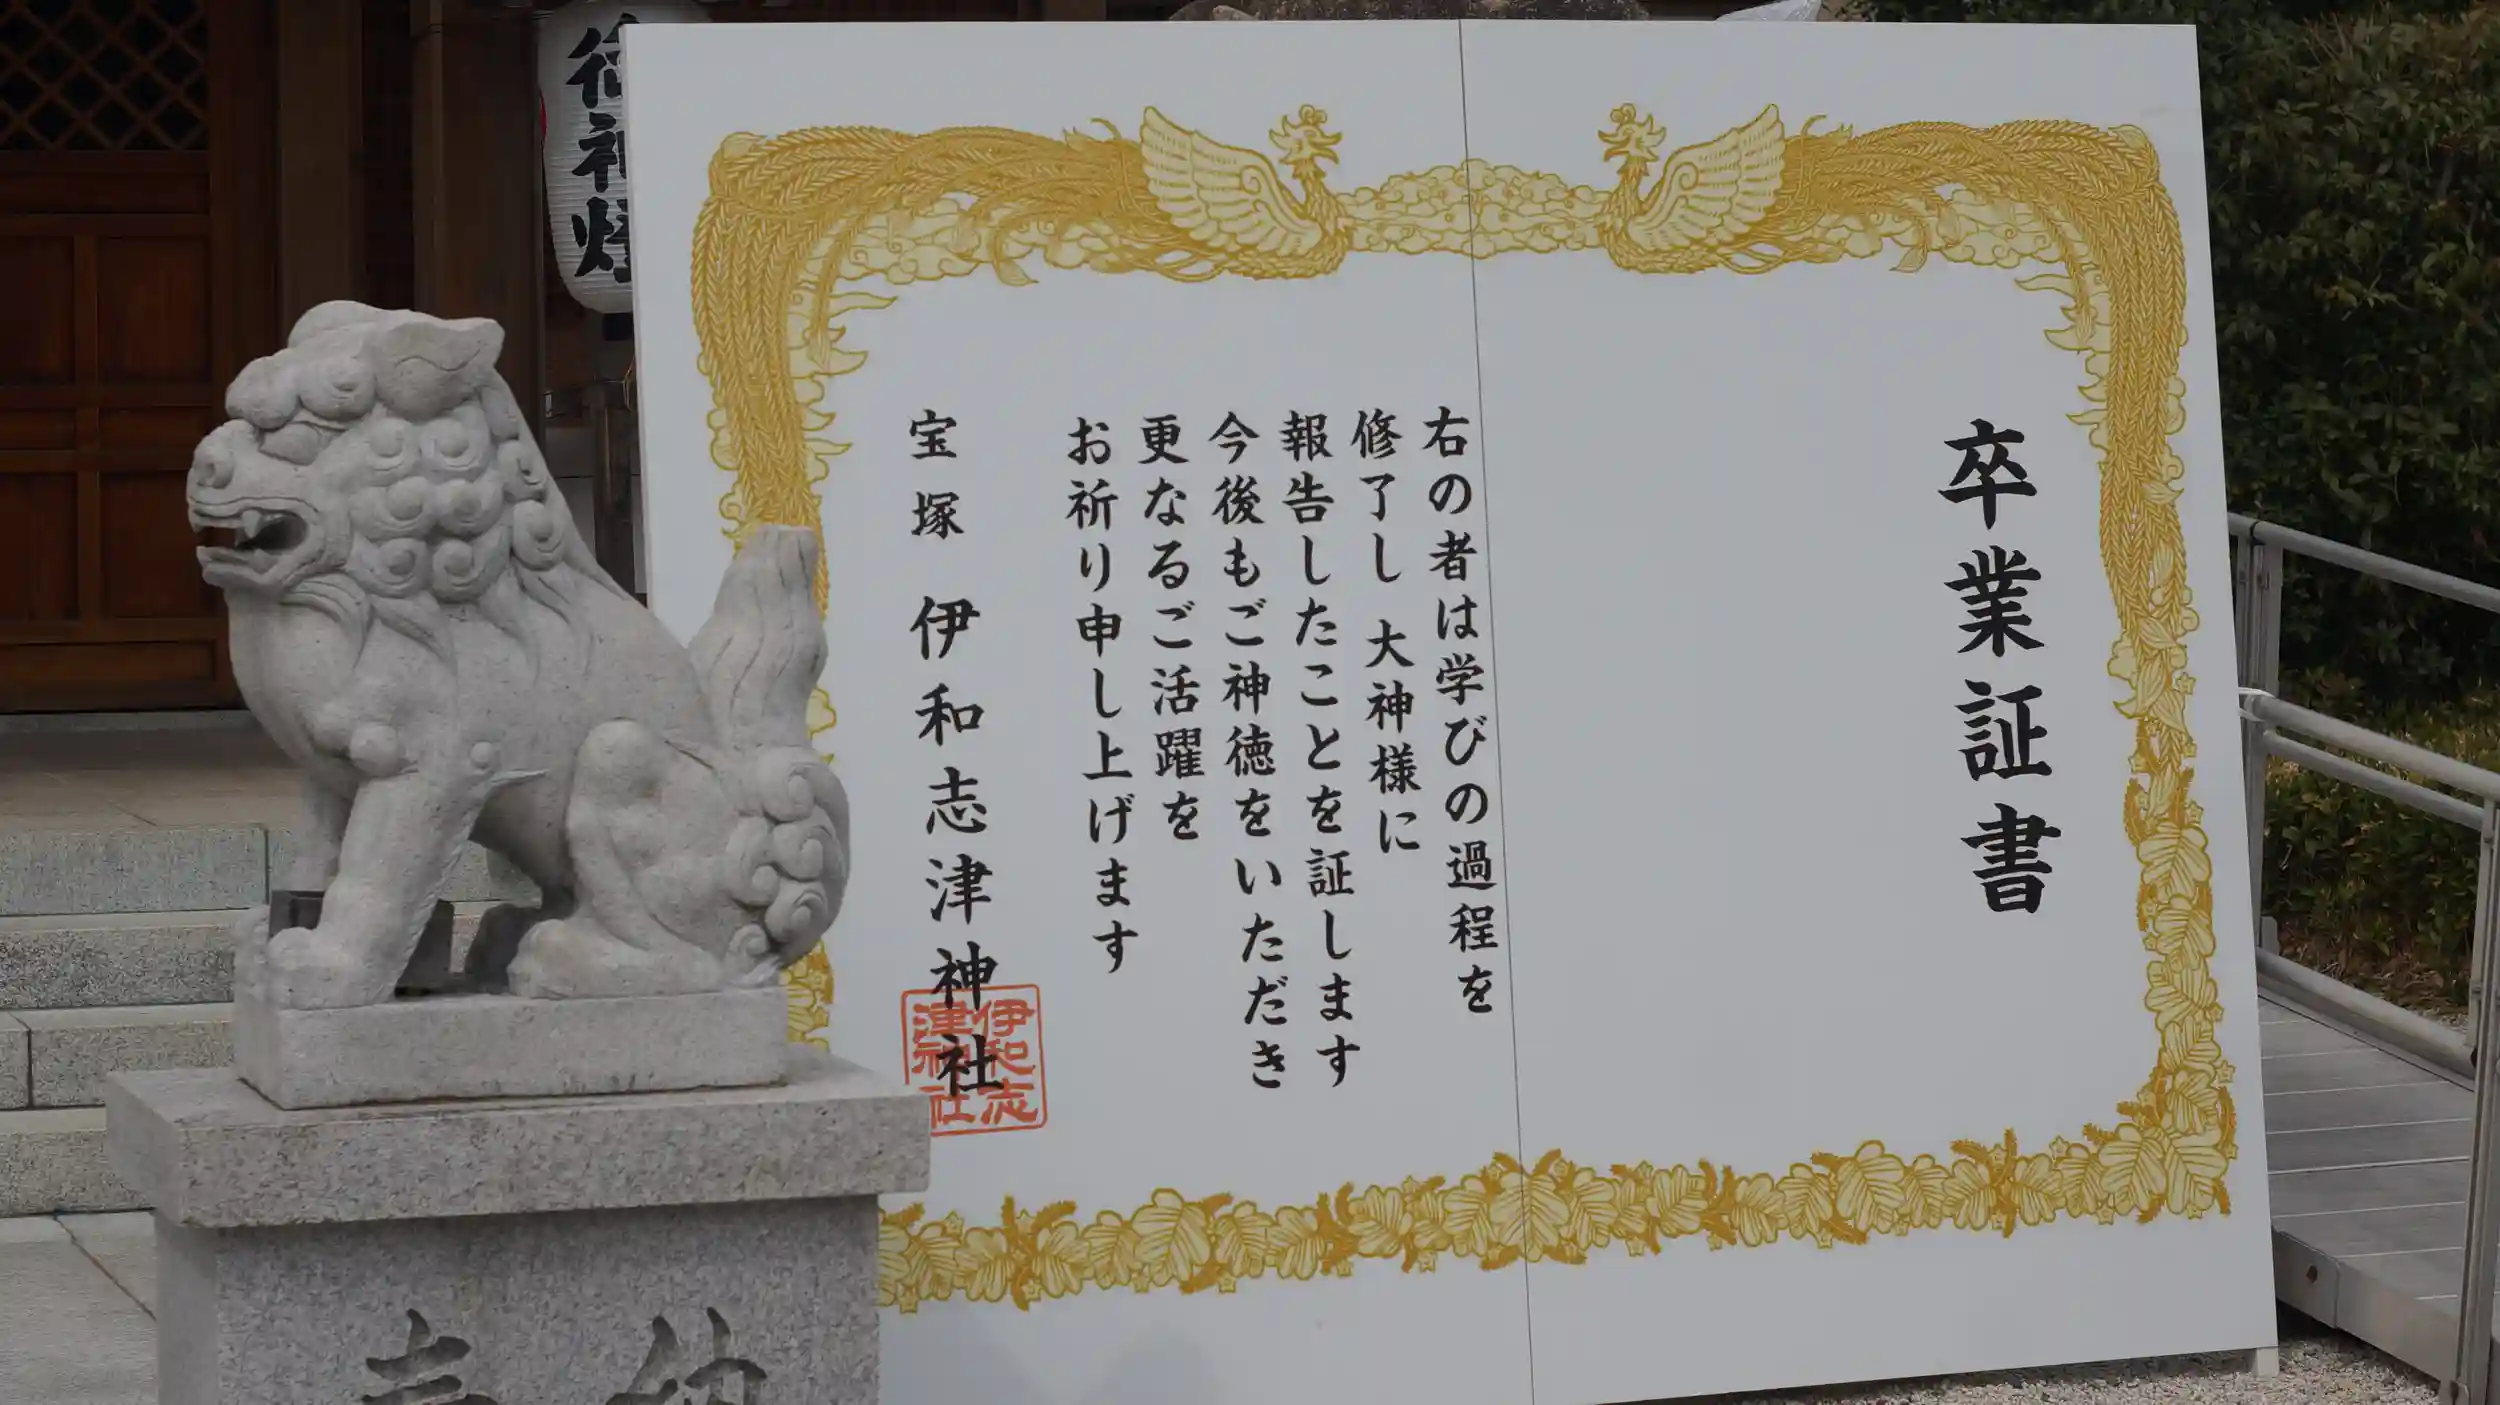 卒業証書
右の者は学びの過程を
修了し 大神様に
報告したことを証します
今後もご神徳をいただき
更なるご活躍を
お祈り申し上げます
宝塚 伊和志津神社
伊和志
津神社
御神燈